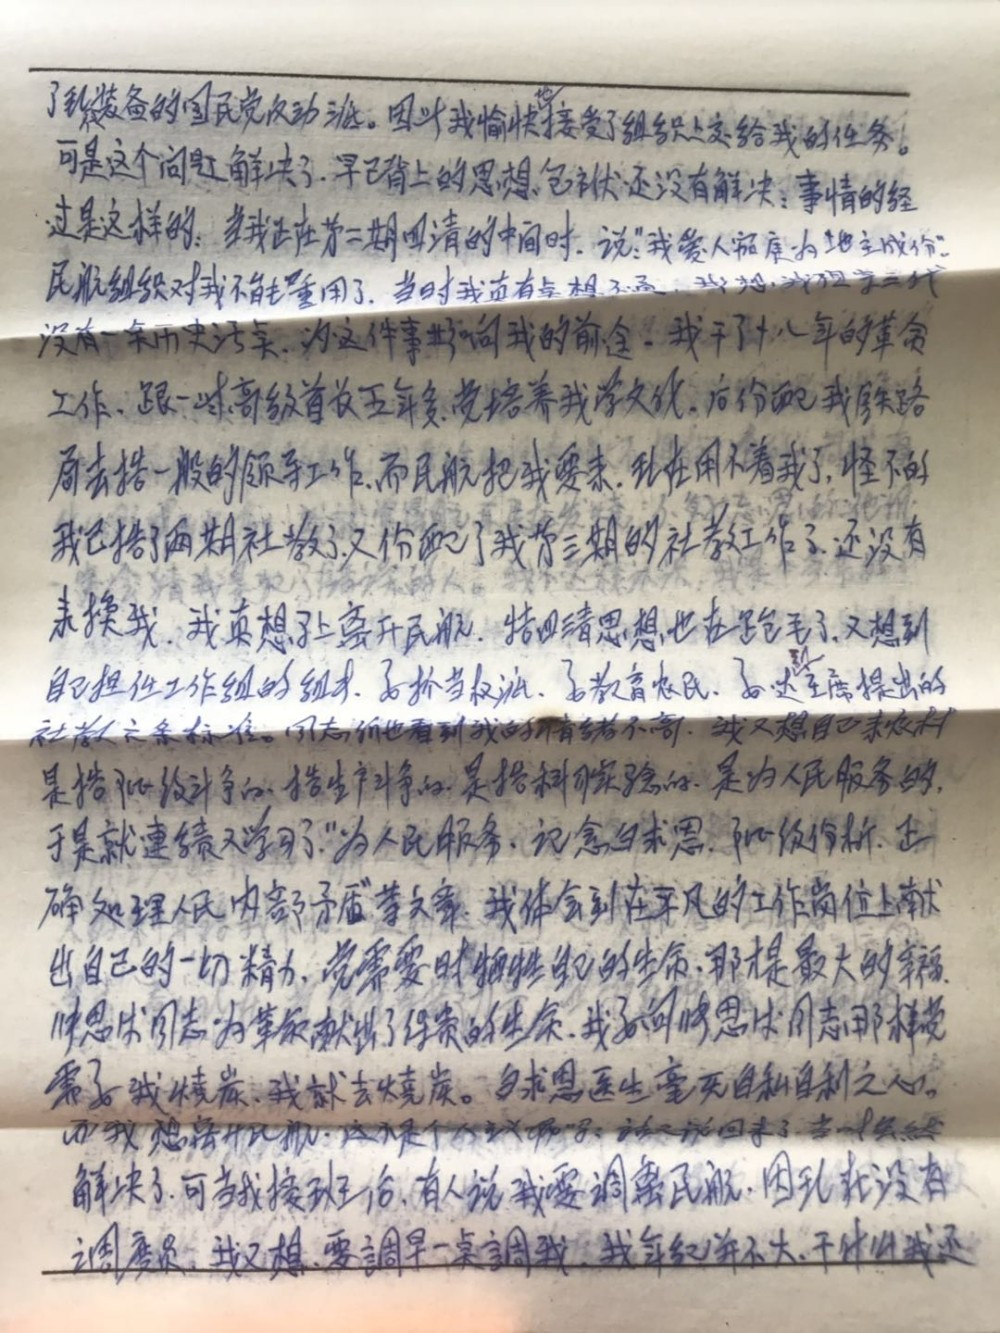 了我装备的国民党反动派。因此我愉快地接受了组织上交给我的任务。
可是这个问题解决了、早已背上的思想包袱还没有解决；事情的经
过是这样的；当我正在第二期四清的中间时、说："我爱人家庭为"地主成份"
民航组织对我不能重用了、当时我真有点想不通、我想、我祖宗三代
没有一点历史污点、为这件事影响我的前途。我干了十八年的革命
工作、跟一些高级首长五年多、党培养我学文化、后份配我铁路
局去搞一般的领导工作、而民航把我要来、现在用不着我了、怪不的
我已搞了两期社教了、又份配了我第三期的社教工作了、还没有
来换我、我真想马上离开民航、搞四清思想也在跑毛了、又想到
自己担任工作组的组长、要抓当权派、要教育农民、要达到主席提出的
社教六条标准。同志们也看到我的情绪不高、我又想自己来农村
是搞阶级斗争的、搞生产斗争的、是搞科学实验的、是为人民服务的、
于是就連续又学习了"为人民服务、记念白求恩、阶级份析、正
确处理人民内部矛盾"等文章、我体会到在平凡的工作岗位上献
出自己的一切精力、党需要时牺牲自己的生命、那才是最大的幸福、
张思德同志为革命献出了保贵的生命、我要向张思德同志那样党
需要我烧炭、我就去烧炭。白求恩医生毫无自私自利之心。
而我想离开民航、这不是个人主义吗？话又说回来了、当时虽然
解决了、可当我接班工作、有人说我要调离民航、因现在没有
调离员、我又想、要調早一点調我、我年纪并不大、干什么我还